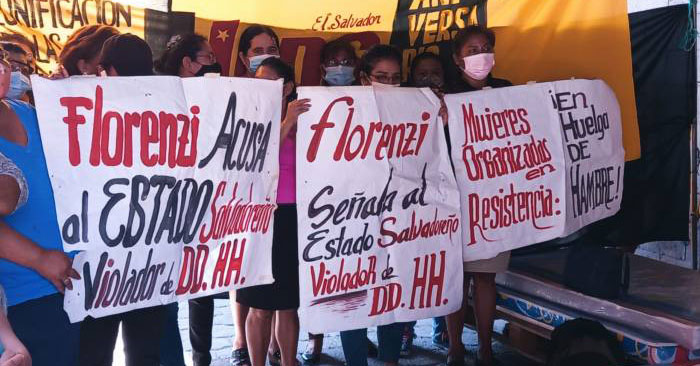 UNIFICACION
El Salvador
ANI
VERSA
Florenzi Acusa
al ESTADO Salvadoreño
Violador de DD. HH.
florenzi
Señala al
Estado Salvadoreño
VioladoR de
DD. HH.
Mujeres
Organizadas
en
Resistencia:
¡En
Huelga
DE
HAMBRE!